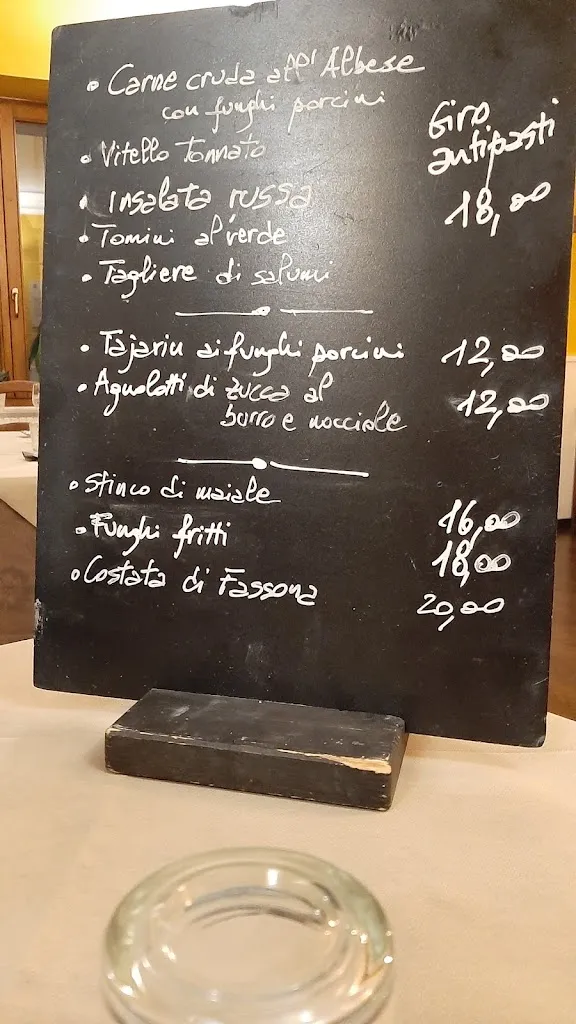 • Carne cruda all'Albese
con funghi porcini
• Vitello Tonnato
• Insalata russa
• Tomini al verde
• Tagliere di salumi
Giro
antipasti
18,00
• Tajarin ai funghi porcini 12,00
• Agnolotti di zucca al 12,00
burro e nocciole
• Stinco di maiale 16,00
• Funghi fritti 18,00
• Costata di Fassona 20,00